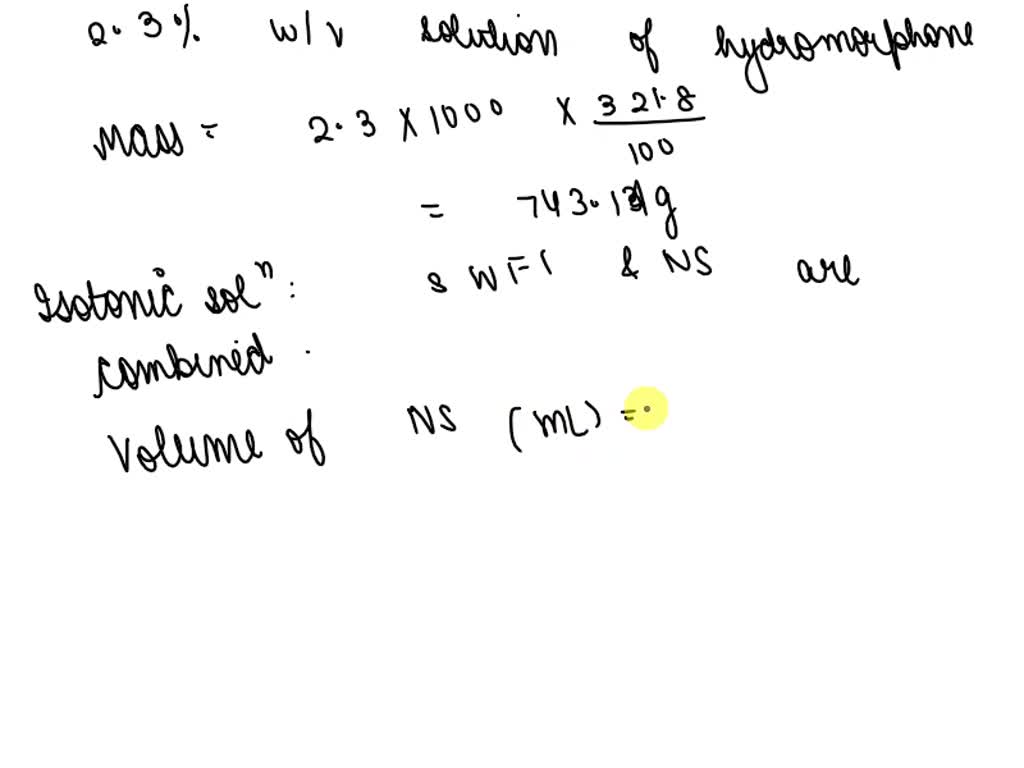 2.3% w/v solution of hydromorphone
Mass = 2.3 X 1000 X 321.8
100
= g
Isotonic solⁿ : SWFI & NS are
combined .
Volume of NS (mL) =